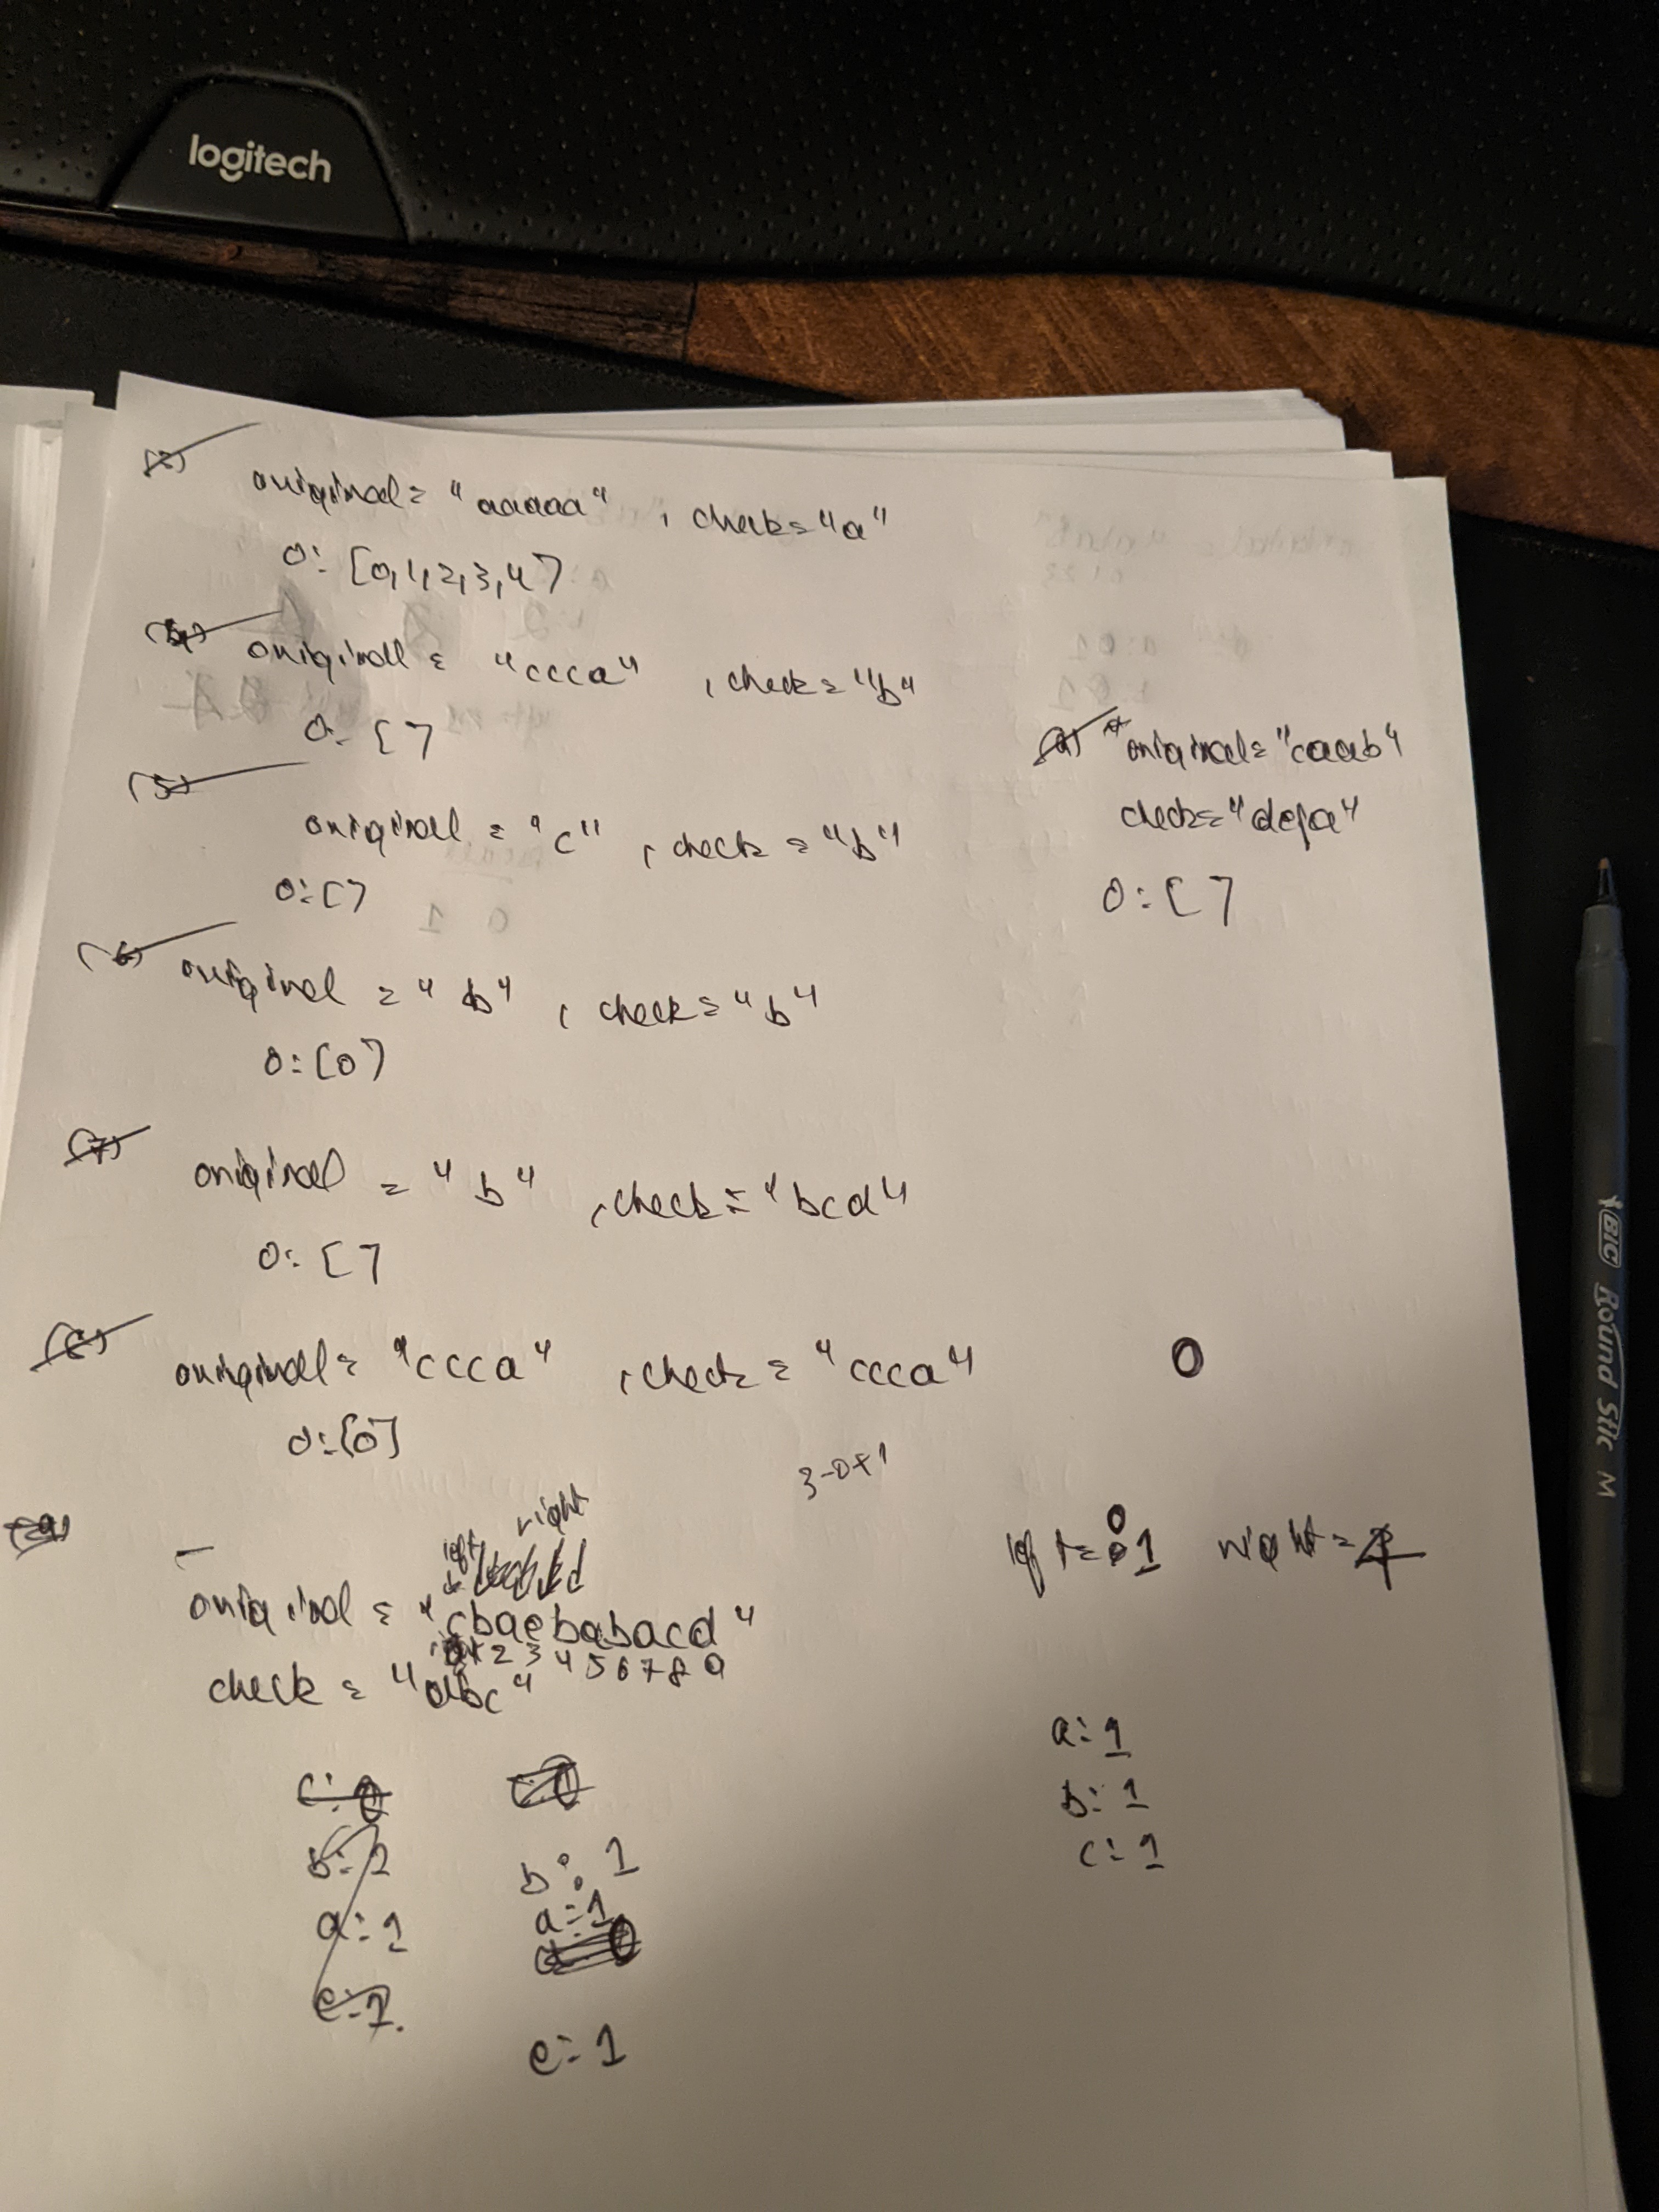 logitech
original = "aaaaa" , check = "a"
O: [0,1,2,3,4]
original = "ccca" , check = "b"
O: []
(5)
original = "c" , check = "b"
O: []
(6) original = "b" , check = "b"
O: [0]
(7) original = "b" , check = "bcd"
O: []
original = "ccca" , check = "ccca"
O: [0]
original = "caab"
check = "defa"
O: []
0
3-0+1
left right
original = "cbaebabacd"
2 3 4 5 6 7 8 9
check = "abc"
0
left = 1 right = 4
c: 0
b: 1
a: 1
e: 1
b: 1
a: 1
0
e: 1
a: 1
b: 1
c: 1
BIC Round Stic M